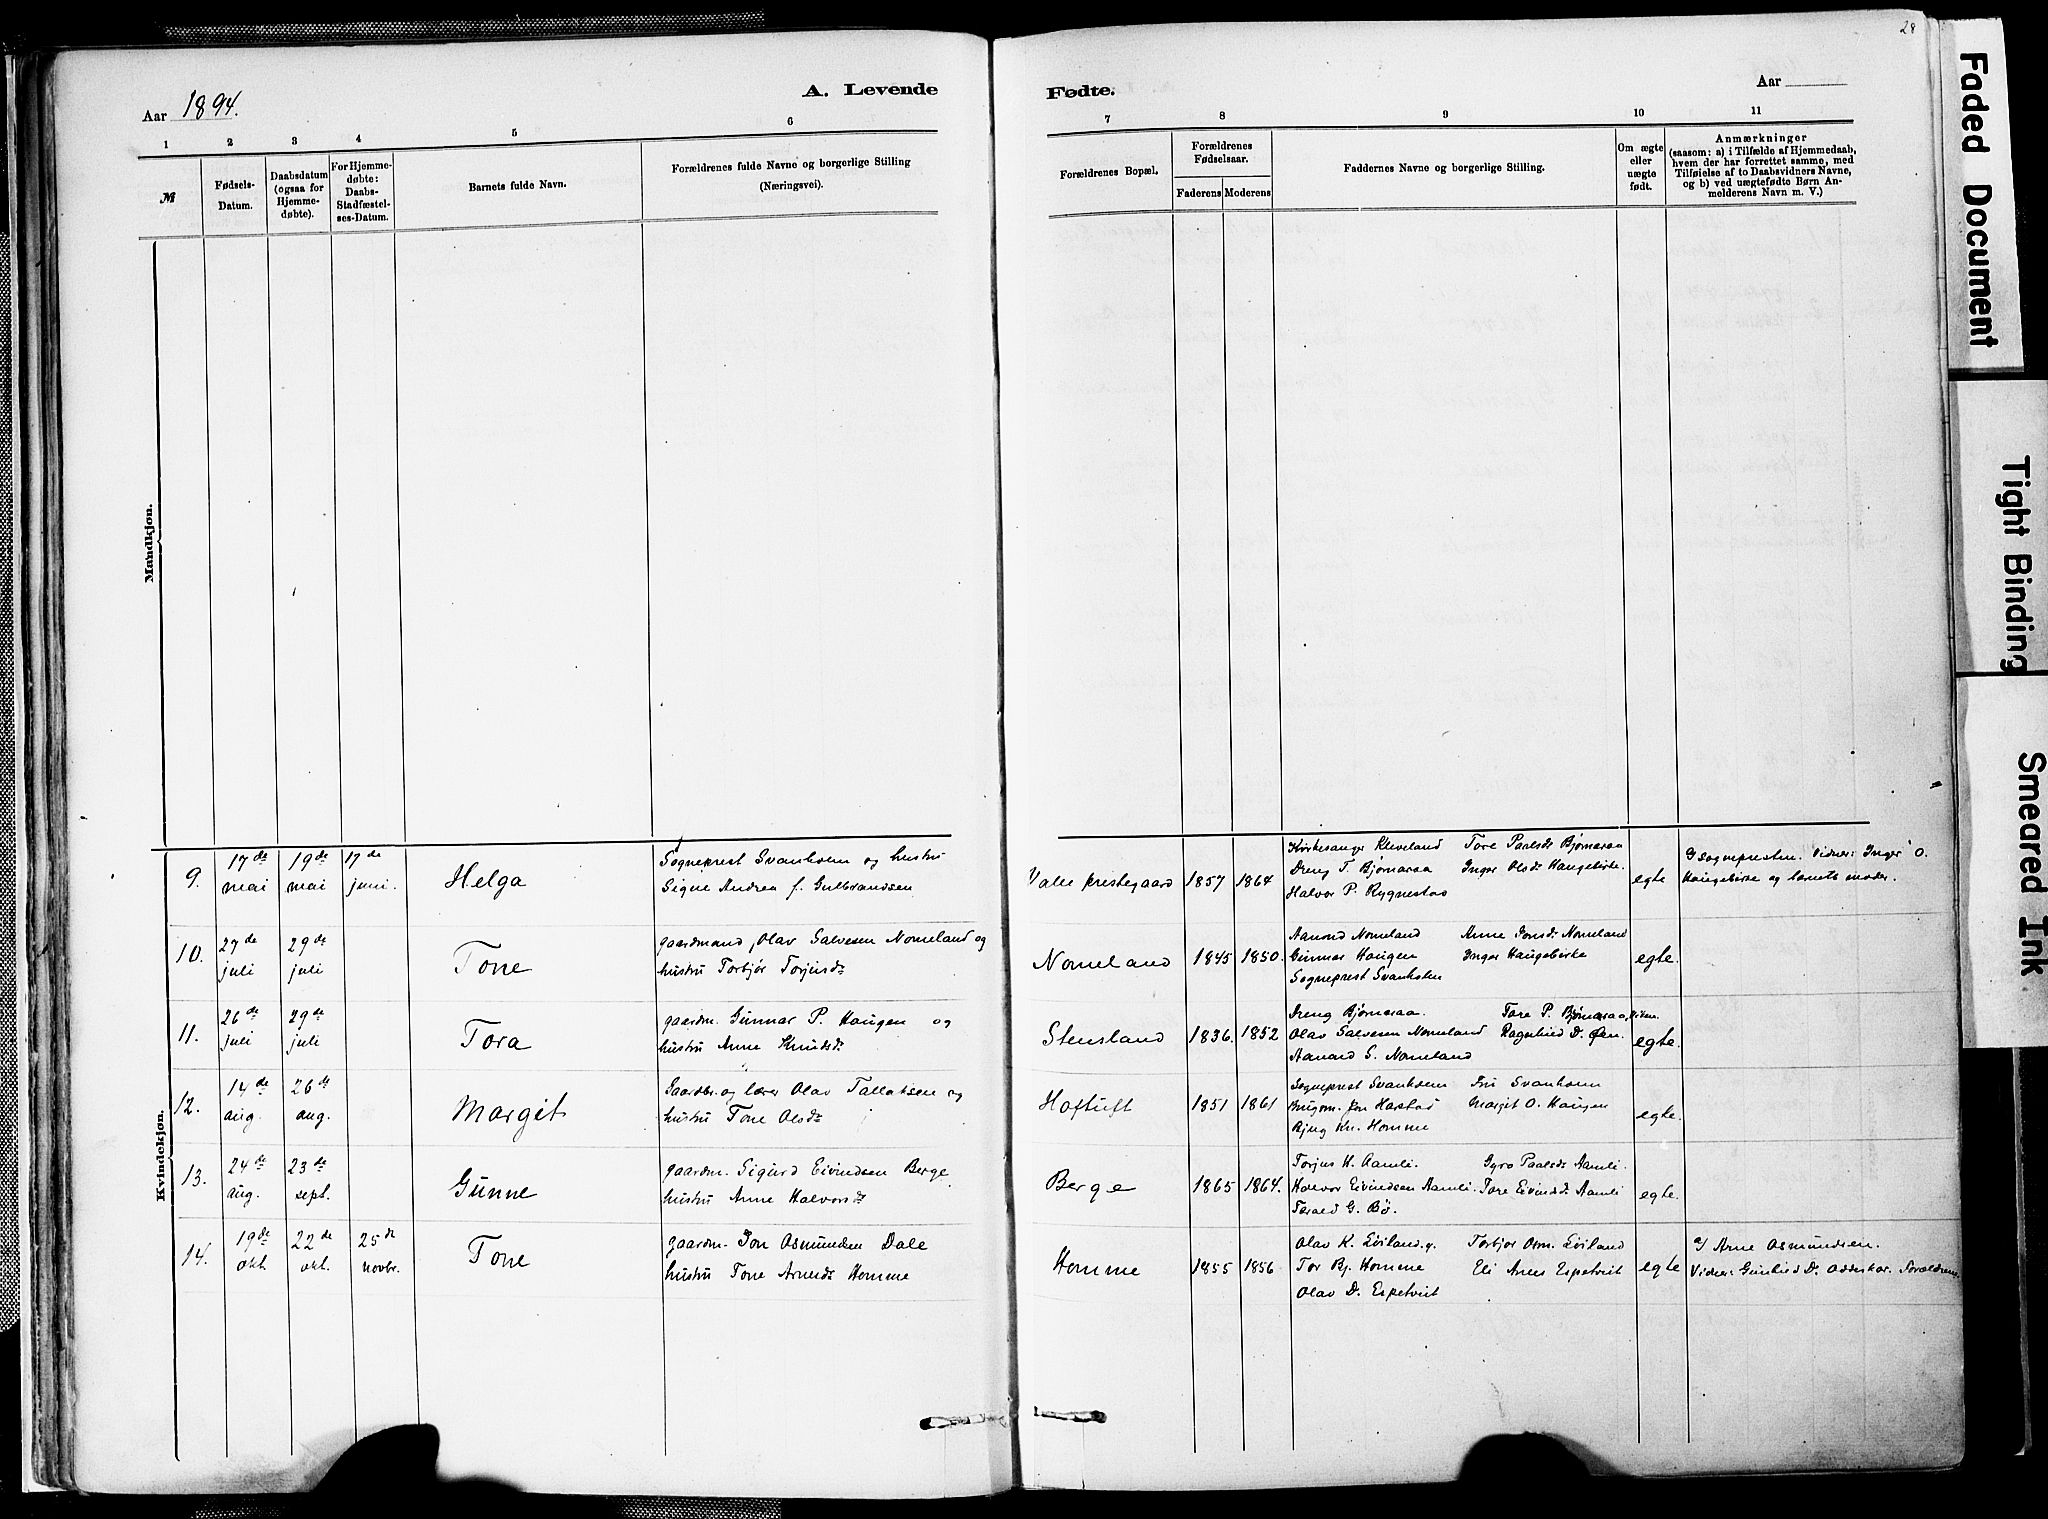 28
Aar 1894.
A. Levende
Fødte.
Aar
1 2 3 4 5 6
7 8 9 10 11
№
Fødsels-
Datum.
Daabsdatum
(ogsaa for
Hjemme-
døbte).
For Hjemme-
døbte:
Daabs-
Stadfæstel-
ses-Datum.
Barnets fulde Navn.
Forældrenes fulde Navne og borgerlige Stilling
(Næringsvei).
Forældrenes Bopæl.
Forældrenes
Fødselsaar.
Faderens Moderens
Faddernes Navne og borgerlige Stilling.
Om ægte
eller
uægte
født.
Anmærkninger
(saasom: a) i Tilfælde af Hjemmedaab,
hvem der har forrettet samme, med
Tilføielse af to Daabsvidners Navne,
og b) ved uægtefødte Børn An-
melderens Navn m. V.)
Mandkjøn.
Kvindekjøn.
9.
17de
mai
19de
mai
17de
juni.
Helga
Sogneprest Svanholm og hustru
Signe Andrea f. Gulbrandsen
Valle prestegaard
1857
1864
Kirkesanger Kleveland Tore Paalsdr Bjørnaraa
Dreng T. Bjørnaraa Inger Olsdr Haugebirke.
Halvor P. Rygnestad
egte
Sognepresten. Vidner: Inger O.
Haugebirke og barnets moder.
10.
27de
juli
29de
juli
Tone
gaardmand, Olav Salvesen Nomeland og
hustru Torbjør Torjusdr
Nomeland
1845
1850.
Aanond Nomeland Anne Jonsdr Nomeland
Gunnar Haugen Inger Haugebirke
Sogneprest Svanholm
egte.
11.
26de
juli
29de
juli
Tora
gaardm. Gunnar P. Haugen og
hustru Anne Knudsdr
Stensland
1836.
1852
Dreng Bjørnaraa. Tore P. Bjørnaraa,
Olav Salvesen Nomeland Ragnhild D.
Aanond S. Nomeland
egte.
12.
14de
aug.
26de
aug.
Margit
Gaardbr. og lærer Olav Tallaksen og
hustru Tone Olsdr
Hoftuft
1851
1861
Sogneprest Svanholm Fru Svanholm
Brugm. Jon Harstad Margit O. Haugen
Bjug Kn. Homme
egte.
13.
24de
aug.
23de
sept.
Gunne
gaardm. Sigurd Eivindsen Berge
hustru Anne Halvorsdr
Berge
1865
1864.
Torjus H. Aamli. Gyro Paalsdr Aamli.
Halvor Eivindsen Aamli. Tore Eivindsdr Aamli
Tarald G. Bø.
egte.
14.
19de
okt.
22de
okt.
25de
novbr.
Tone
gaardm. Jon Osmundsen Dale
hustru Tone Arnesdr Homme
Homme
1855
1856
Olav K. Eviland. Torbjør Osm. Eviland
Tor Bj. Homme Eli Arnes Espetveit
Olav D. Espetveit
egte
Arne Osmundsen.
Vidner: Gunhild D. Forældrene
Faded Document
Tight Binding
Smeared Ink